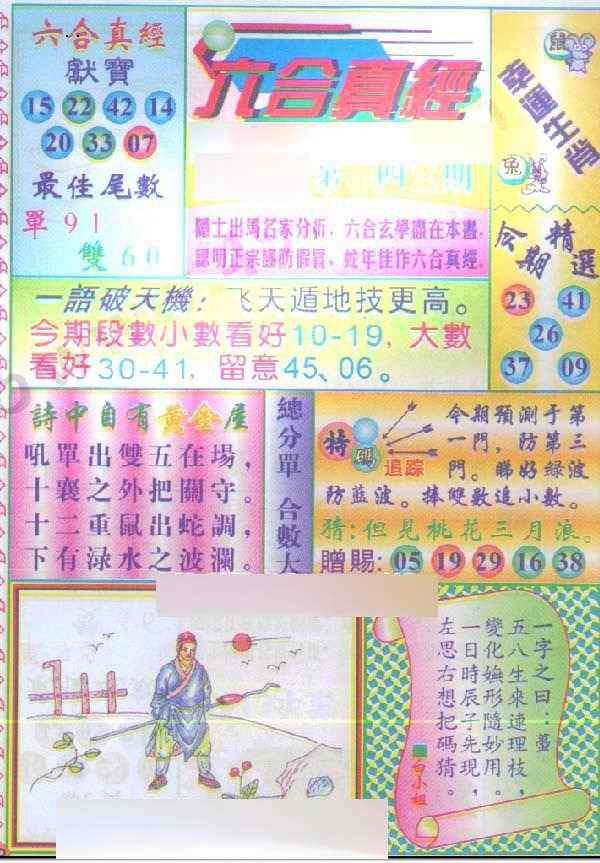 六合真經
獻寶
15 22 42 14
20 33 07
最佳尾數
單91
雙60
六合真經
期
隱士出馬名家分析，六合玄學盡在本書，
認明正宗謹防假冒，蛇年佳作六合真經。
幸運生肖
鼠
兔
今期精選
23 41
26
37 09
一語破天機：飞天遁地技更高。
今期段數小數看好10-19，大數
看好30-41，留意45、06。
詩中自有黃金屋
吼單出雙五在場，
十襄之外把關守。
十二重鼠出蛇調，
下有渌水之波瀾。
總分單 合數大
特碼追踪
今期預測于第
一門，防第三
門。睇好綠波
防蓝波。捧雙數追小數。
猜：但見桃花三月浪。
贈賜：05 19 29 16 38
一字之曰：
五八生來連理枝，
變化嫵形隨妙用，
一日時辰子先現，
左思右想把碼猜。
白小姐